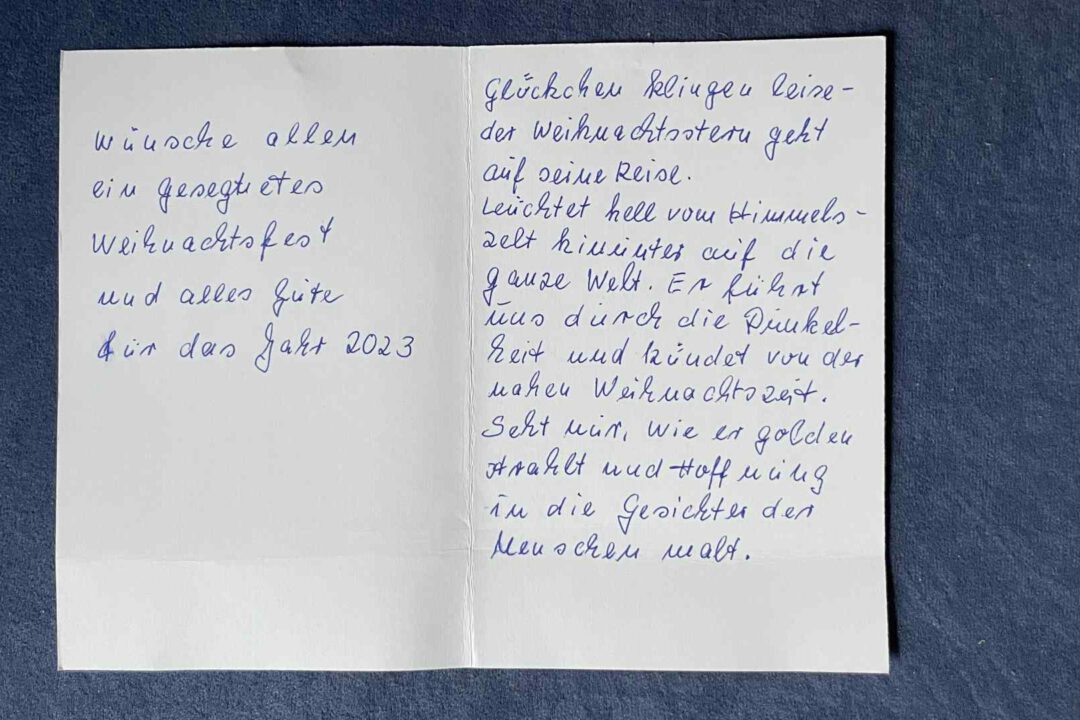 Wünsche allen
ein gesegnetes
Weihnachtsfest
und alles Gute
für das Jahr 2023
Glöckchen klingen leise -
der Weihnachtsstern geht
auf seine Reise.
Leuchtet hell vom Himmels-
zelt hinunter auf die
ganze Welt. Er führt
uns durch die Dunkel-
heit und kündet von der
nahen Weihnachtszeit.
Seht nur, wie er golden
strahlt und Hoffnung
in die Gesichter der
Menschen malt.